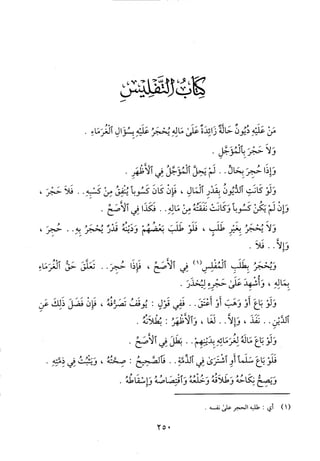 كِتَابُ التَّفْلِيسِ
مَنْ عَلَيْهِ دُيُونٌ حَالَّةٌ زَائِدَةٌ عَلَىٰ مَالِهِ يُحْجَرُ عَلَيْهِ بِسُؤَالِ ٱلْغُرَمَاءِ .
وَلاَ حَجْرَ بِٱلْمُؤَجَّلِ .
وَإِذَا حُجِرَ بِحَالٍّ.. لَمْ يَحِلَّ ٱلْمُؤَجَّلُ فِي ٱلأَظْهَرِ .
وَلَوْ كَانَتِ ٱلدُّيُونُ بِقَدْرِ ٱلْمَالِ ، فَإِنْ كَانَ كَسُوباً يُنْفِقُ مِنْ كَسْبِهِ.. فَلاَ حَجْرَ ،
وَإِنْ لَمْ يَكُنْ كَسُوباً وَكَانَتْ نَفَقَتُهُ مِنْ مَالِهِ.. فَكَذَا فِي ٱلأَصَحِّ .
وَلاَ يُحْجَرُ بِغَيْرِ طَلَبٍ ، فَلَوْ طَلَبَ بَعْضُهُمْ وَدَيْنُهُ قَدْرٌ يُحْجَرُ بِهِ.. حُجِرَ ،
وَإِلاَّ.. فَلاَ .
وَيُحْجَرُ بِطَلَبِ ٱلْمُفْلِسِ(١) فِي ٱلأَصَحِّ ، فَإِذَا حُجِرَ.. تَعَلَّقَ حَقُّ ٱلْغُرَمَاءِ
بِمَالِهِ ، وَأَشْهَدَ عَلَىٰ حَجْرِهِ لِيُحْذَرَ .
وَلَوْ بَاعَ أَوْ وَهَبَ أَوْ أَعْتَقَ.. فَفِي قَوْلٍ : يُوقَفُ تَصَرُّفُهُ ، فَإِنْ فَضَلَ ذَلِكَ عَنِ
ٱلدَّيْنِ.. نَفَذَ ، وَإِلاَّ.. لَغَا ، وَٱلأَظْهَرُ : بُطْلاَنُهُ .
وَلَوْ بَاعَ مَالَهُ لِغُرَمَائِهِ بِدَيْنِهِمْ.. بَطَلَ فِي ٱلأَصَحِّ .
فَلَوْ بَاعَ سَلَماً أَوِ ٱشْتَرَىٰ فِي ٱلذِّمَّةِ.. فَٱلصَّحِيحُ : صِحَّتُهُ ، وَيَثْبُتُ فِي ذِمَّتِهِ .
وَيَصِحُّ نِكَاحُهُ وَطَلاَقُهُ وَخُلْعُهُ وَٱقْتِصَاصُهُ وَإِسْقَاطُهُ .
(١) أي : طلبه الحجر على نفسه .
٢٥٠